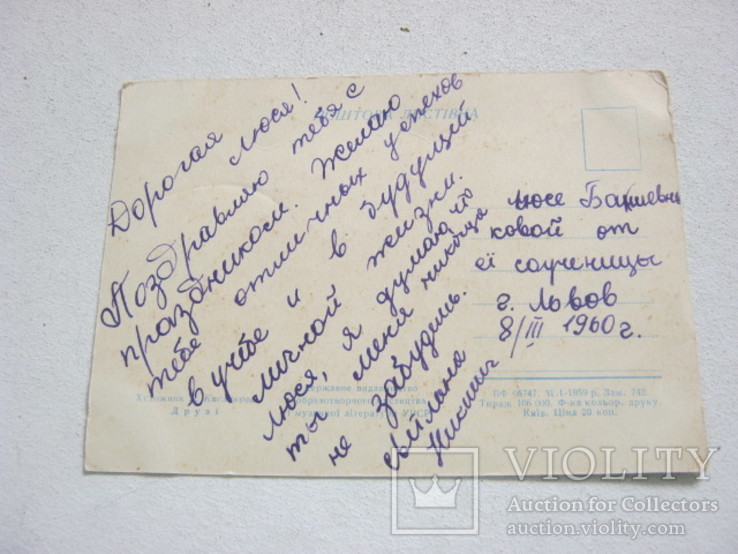 ПОШТОВА ЛИСТІВКА
Дорогая Люся!
Поздравляю тебя с
праздником. Желаю
тебе отличных успехов
в учёбе и в будущий
личной жизни.
Люся, я думаю что
ты меня никогда
не забудешь.
Люсе
ковой от
её соученицы
г. Львов
8/III 1960 г.
Художник
Друзі
Державне видавництво
образотворчого мистецтва
музичної літератури УРСР
БФ 06747. VI.1-1959 р. Зам. 742.
Тираж 106 000. Ф-ка кольор. друку.
Київ. Ціна 20 коп.
VIOLITY
Auction for Collectors
auction.violity.com